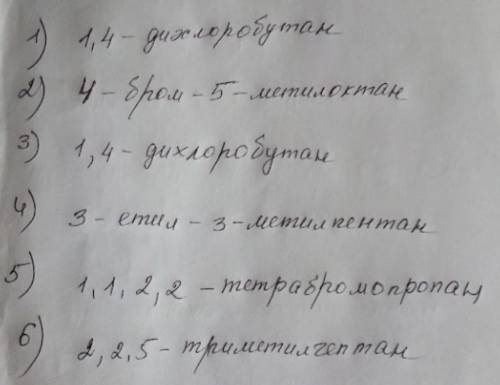 1) 1,4 - дихлоробутан
2) 4 - бром - 5 - метилоктан
3) 1,4 - дихлоробутан
4) 3 - етил - 3 - метилпентан
5) 1,1,2,2 - тетрабромопропан
6) 2,2,5 - триметилгептан